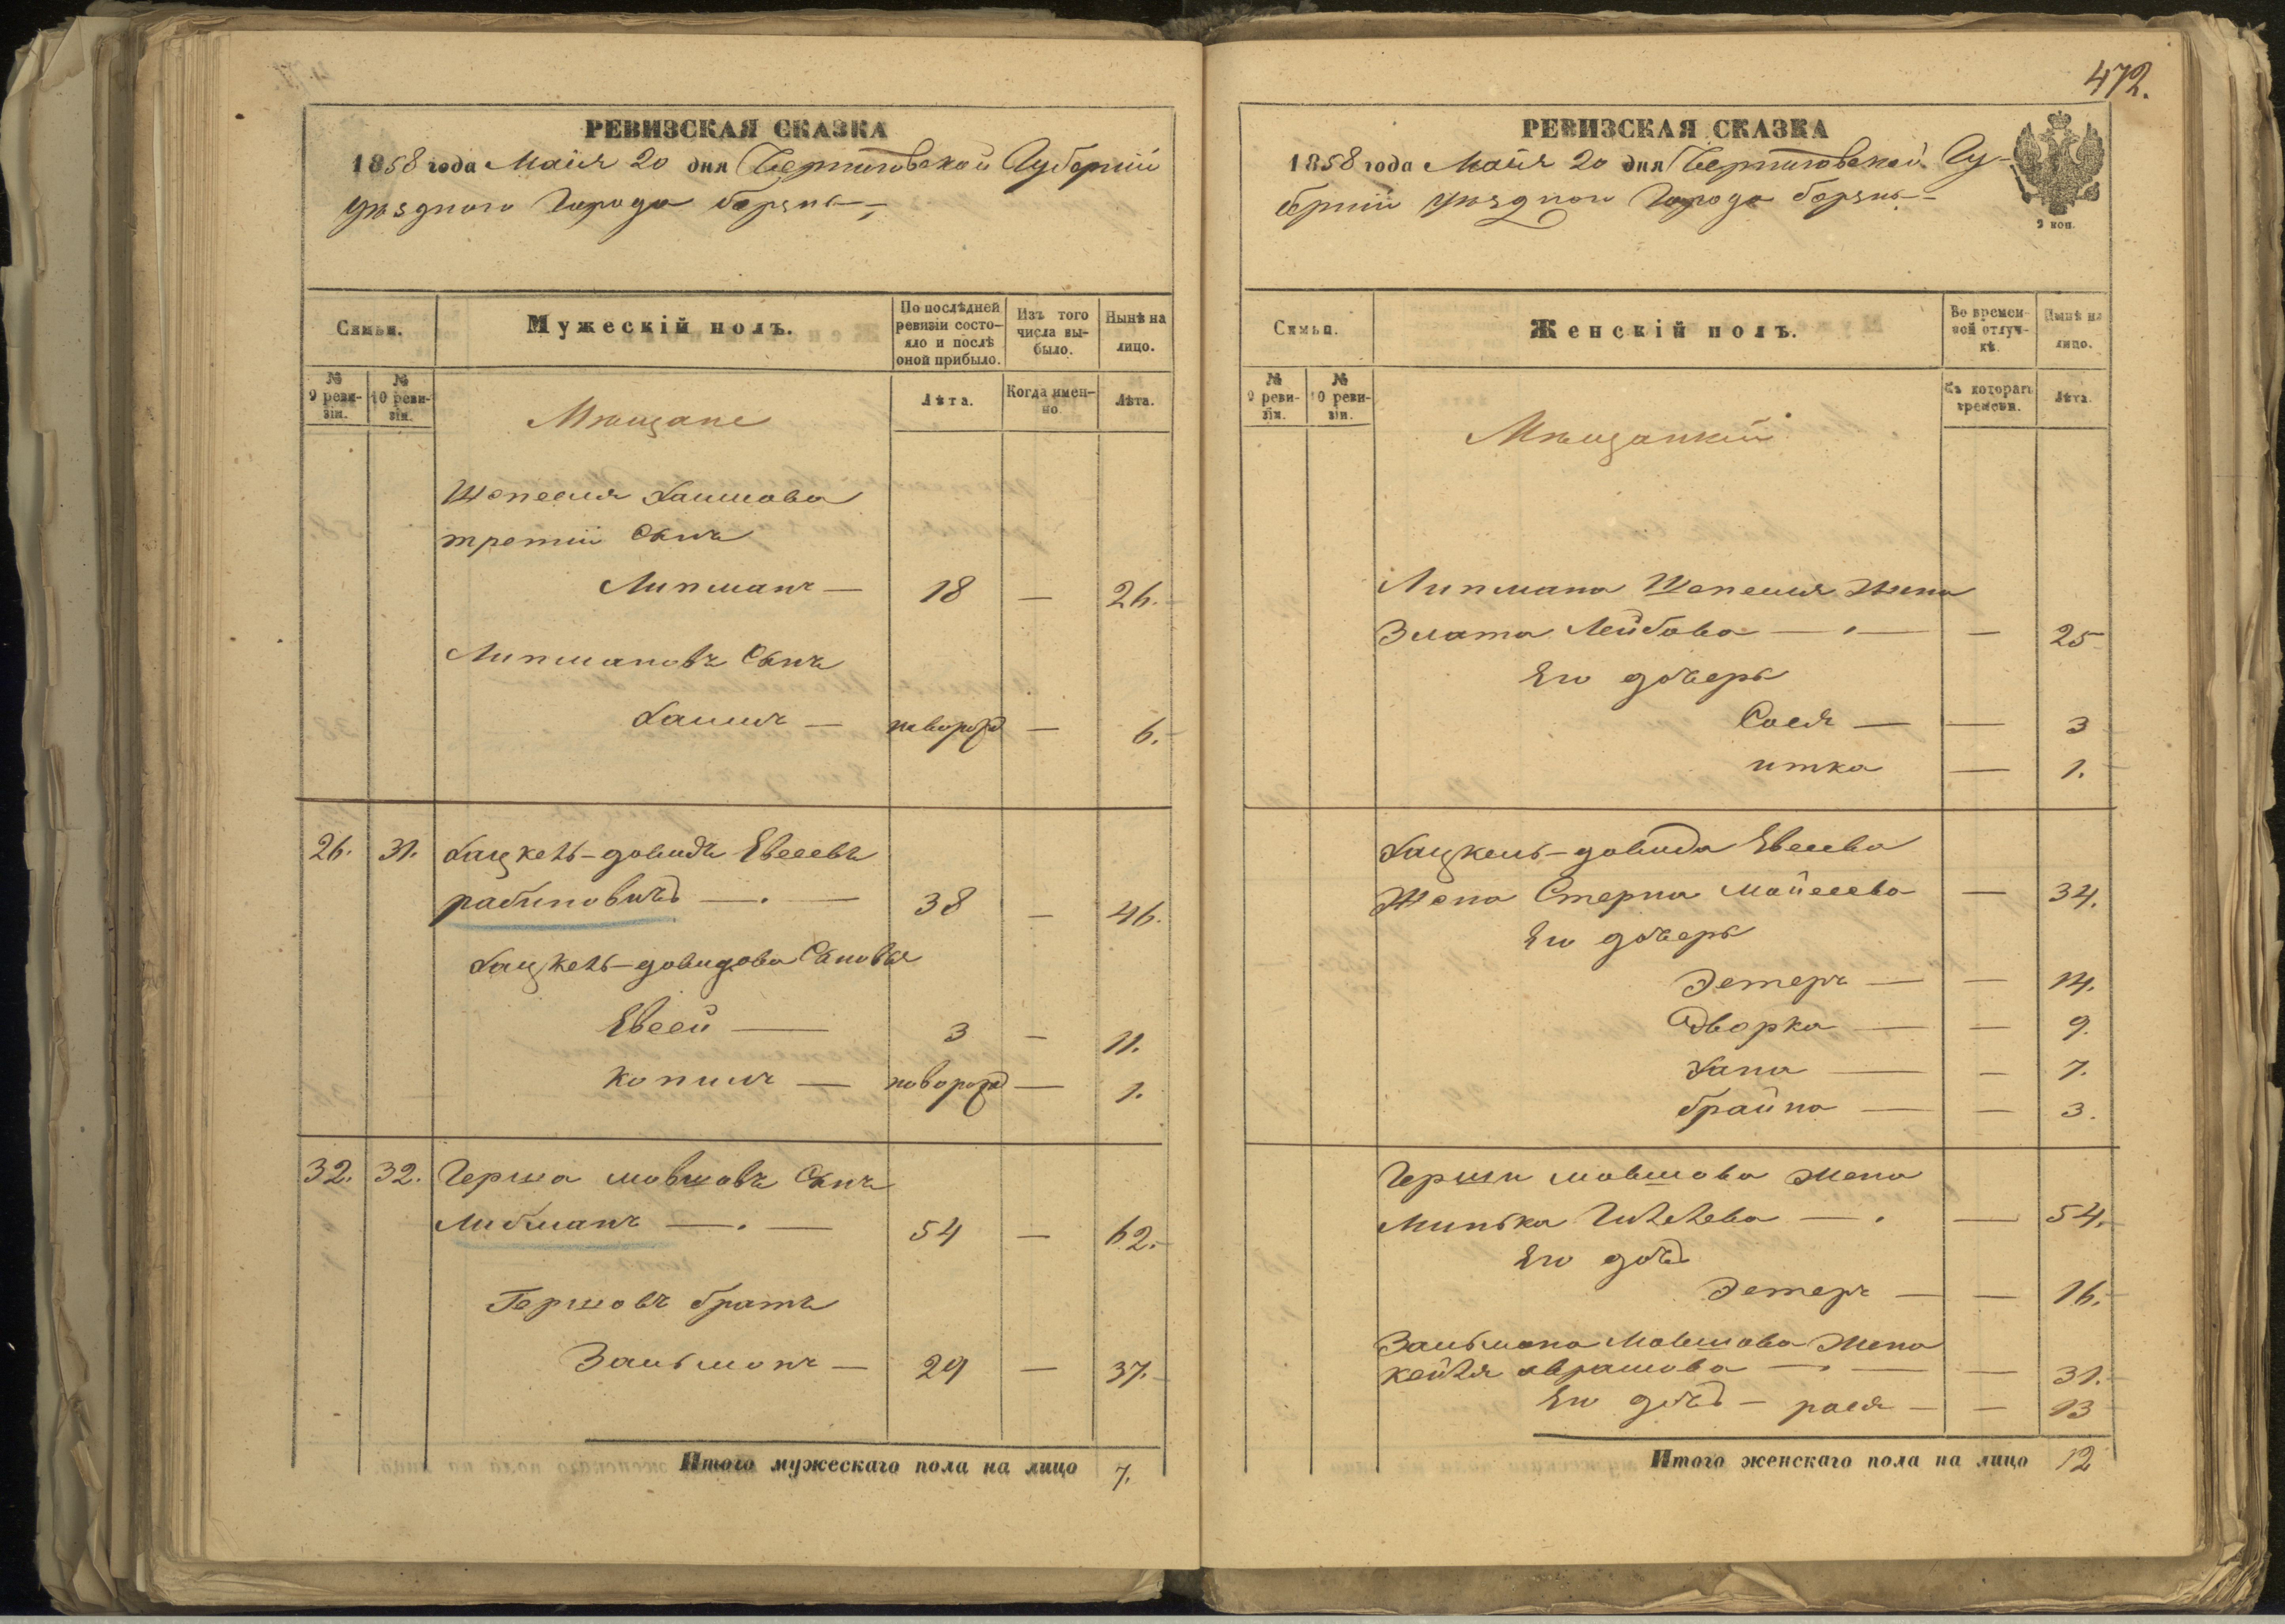 РЕВИЗСКАЯ СКАЗКА
1858 года Маія 20 дня Черниговской Губерніи
уѣзднаго Города борзны
Сямьи. Мужескій полъ. По послѣдней ревизіи состояло и послѣ оной прибыло. Изъ того числа выбыло. Нынѣ на лицо.
№ 9 ревизіи. № 10 ревизіи. Лѣта. Когда именно. Лѣта.
Мѣщане
Хаимова
третій Сынъ
Липманъ — 18 — 26.
Липмановъ Сынъ
Хаимъ — новорожд — 6.
26. 31. Хацкель-довидъ Евсеевъ
рабиновичъ — . — 38 — 46.
Хацкель-довидова Сыновья
Евсей — 3 — 11.
копилъ — новорожд — 1.
32. 32. Герша мовшовъ Сынъ
Либманъ — . — 54 — 62.
Гершовъ братъ
Зальманъ — 29 — 37.
Итого мужескаго пола на лицо 7.
472.
РЕВИЗСКАЯ СКАЗКА
1858 года Маія 20 дня Черниговской Гу-
берніи уѣзднаго Города борзны
9 коп.
Сямьи. Женскій полъ. Во временной отлучкѣ. Нынѣ на лицо.
№ 9 ревизіи. № 10 ревизіи. Съ котораго времени. Лѣта.
Мѣщанки
Липмана Жена
Злата Лейбова — . — — 25
Его дочерь
Сося — — 3
итка — 1.
Хацкель-довида Евсеева
Жена Стерна Мойсеева — 34.
Его дочерь
Эстеръ — — 14.
Дворка — — 9.
Хана — — 7.
брайна — — 3.
Герши мовшова жена
Минька — . — 54.
Его дочь
Эстеръ — — 16.
Зальмана Мовшова Жена
кейля аврамова — . — — 31.
Его дочь — рася — — 13
Итого женскаго пола на лицо 12